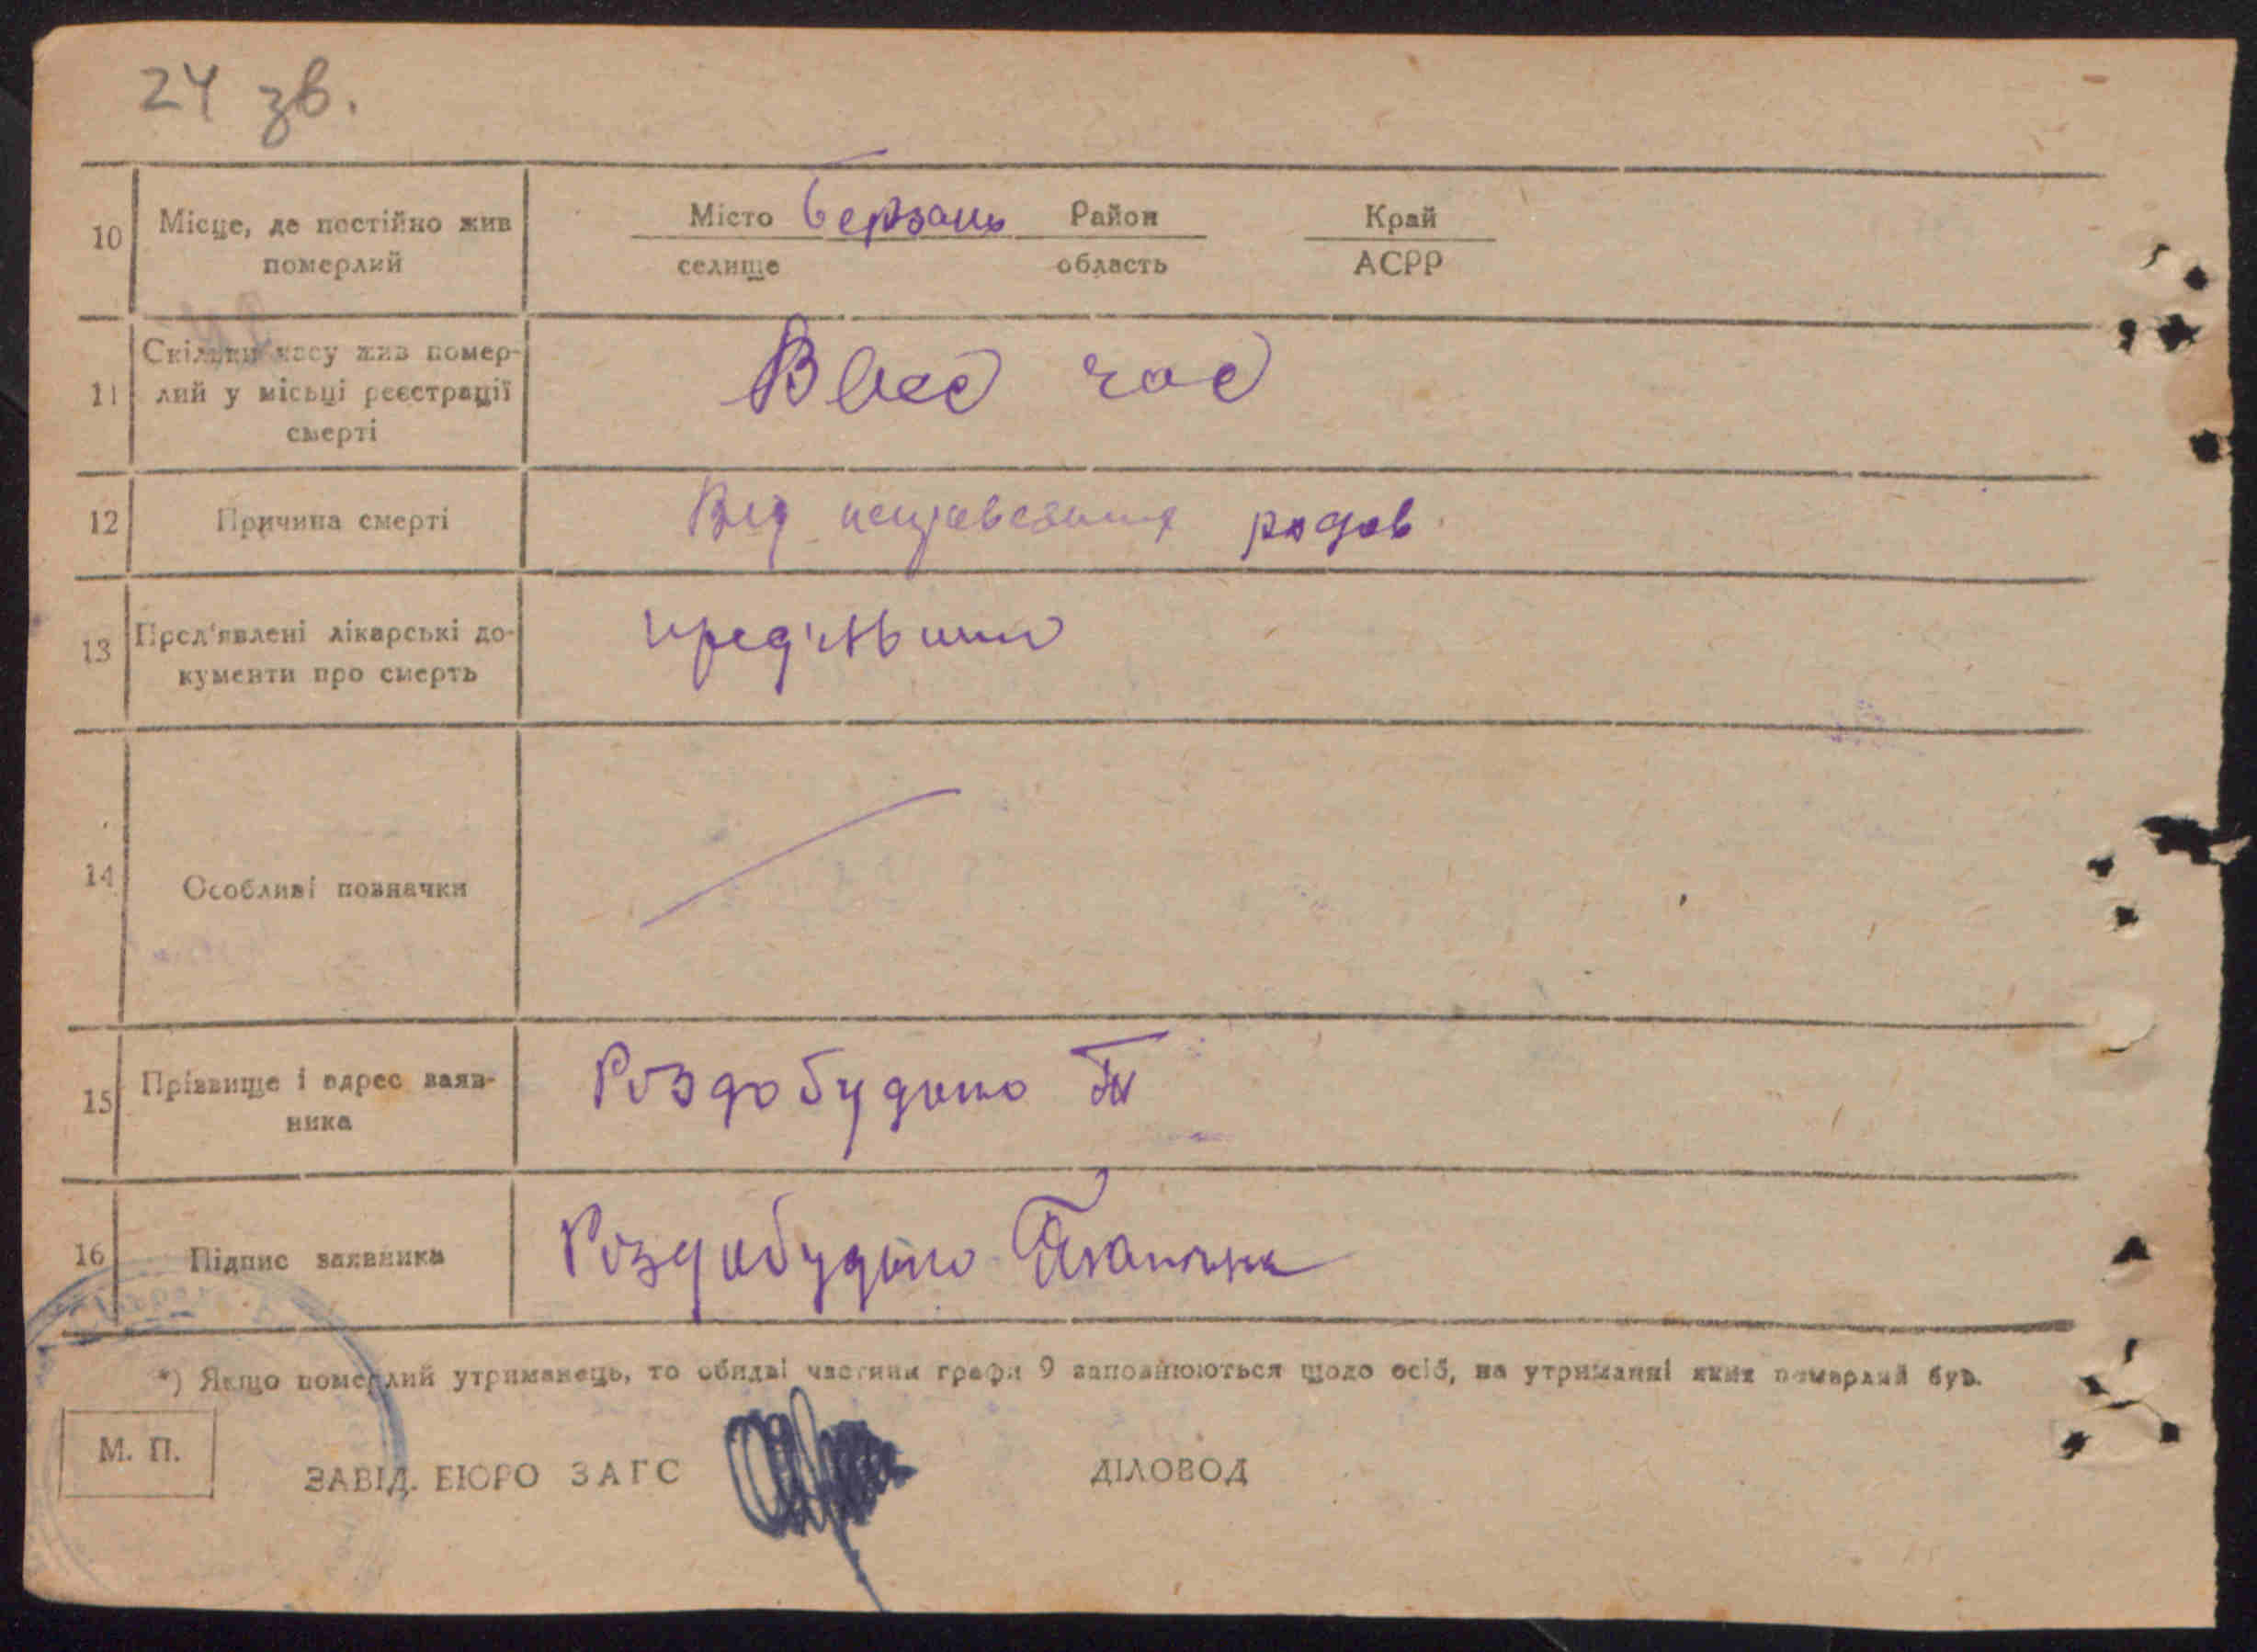 24 зв.
10 Місце, де постійно жив померлий
Місто Березань Район Край
селище область АСРР
11 Скільки часу жив померлий у місьці реєстрації смерті
Ввес час
12 Причина смерті
Від родов
13 Пред'явлені лікарські документи про смерть
14 Особливі позначки
15 Прізвище і адрес заявника
Роздобудько Т
16 Підпис заявника
Роздобудько
*) Якщо померлий утриманець, то обидві частини графи 9 заповнюються щодо осіб, на утриманні яких померлий був.
М. П.
ЗАВІД. БЮРО ЗАГС ДІЛОВОД